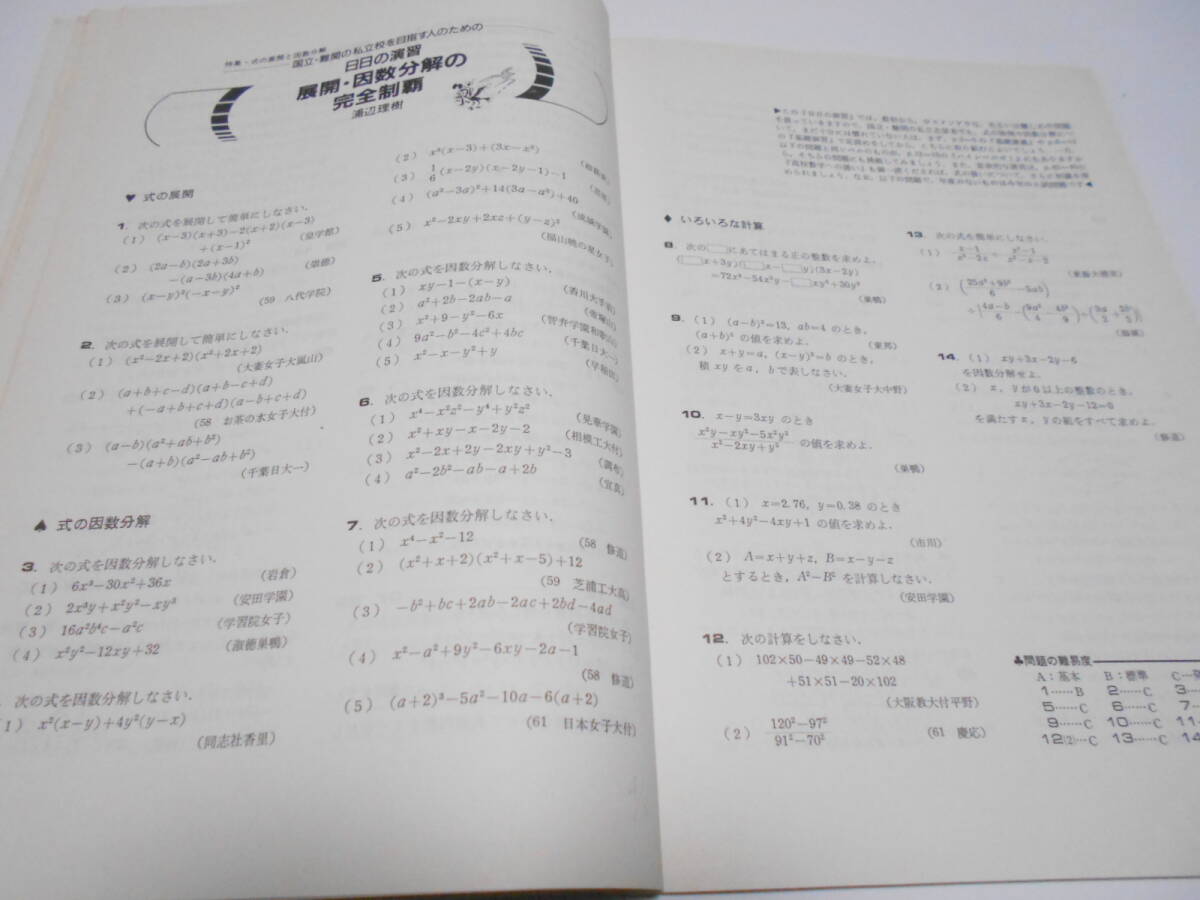 特集・式の展開と因数分解
国立・難関の私立校を目指す人のための
日日の演習
展開・因数分解の
完全制覇
浦辺理樹
♥ 式の展開
1. 次の式を展開して簡単にしなさい.
(1) (x−3)(x+3)−2(x+2)(x−3)
+(x−1)²
(皇学館)
(2) (2a−b)(2a+3b)
−(a−3b)(4a+b)
(崇徳)
(3) (x−y)²(−x−y)²
(59 八代学院)
2. 次の式を展開して簡単にしなさい.
(1) (x²−2x+2)(x²+2x+2)
(大妻女子大嵐山)
(2) (a+b+c−d)(a+b−c+d)
+(−a+b+c+d)(a−b+c+d)
(58 お茶の水女子大付)
(3) (a−b)(a²+ab+b²)
−(a+b)(a²−ab+b²)
(千葉日大一)
♠ 式の因数分解
3. 次の式を因数分解しなさい.
(1) 6x³−30x²+36x
(岩倉)
(2) 2x³y+x²y²−xy³
(安田学園)
(3) 16a²b⁴c−a²c
(学習院女子)
(4) x²y²−12xy+32
(淑徳巣鴨)
次の式を因数分解しなさい.
(1) x²(x−y)+4y²(y−x)
(同志社香里)
(2) x³(x−3)+(3x−x²)
(3) 1/6(x−2y)(x−2y−1)−1
(4) (a²−3a)²+14(3a−a²)+40
(成城学園)
(5) x²−2xy+2xz+(y−z)²
(福山暁の星女子)
5. 次の式を因数分解しなさい.
(1) xy−1−(x−y)
(香川大手前)
(2) a²+2b−2ab−a
(帝塚山)
(3) x²+9−y²−6x
(智弁学園和歌山)
(4) 9a²−b²−4c²+4bc
(千葉日大一)
(5) x²−x−y²+y
(早稲田)
6. 次の式を因数分解しなさい.
(1) x⁴−x²z²−y⁴+y²z²
(晃華学園)
(2) x²+xy−x−2y−2
(相模工大付)
(3) x²−2x+2y−2xy+y²−3
(調布)
(4) a²−2b²−ab−a+2b
(宣真)
7. 次の式を因数分解しなさい.
(1) x⁴−x²−12
(58 修道)
(2) (x²+x+2)(x²+x−5)+12
(59 芝浦工大高)
(3) −b²+bc+2ab−2ac+2bd−4ad
(学習院女子)
(4) x²−a²+9y²−6xy−2a−1
(58 修道)
(5) (a+2)³−5a²−10a−6(a+2)
(61 日本女子大付)
♦ いろいろな計算
8. 次の□にあてはまる正の整数を求めよ.
(□x+3y)(□x−□y)(3x−2y)
=72x³−54x²y−□xy²+30y³
(巣鴨)
9. (1) (a−b)²=13, ab=4 のとき,
(a+b)² の値を求めよ.
(東邦)
(2) x+y=a, (x−y)²=b のとき,
積 xy を a, b で表しなさい.
(大妻女子大中野)
10. x−y=3xy のとき
x²y−xy²−5x²y²/x²−2xy+y² の値を求めよ.
(巣鴨)
11. (1) x=2.76, y=0.38 のとき
x²+4y²−4xy+1 の値を求めよ.
(市川)
(2) A=x+y+z, B=x−y−z
とするとき, A²−B² を計算しなさい.
(安田学園)
12. 次の計算をしなさい.
(1) 102×50−49×49−52×48
+51×51−20×102
(大阪教大付平野)
(2) 120²−97²/91²−70²
(61 慶応)
13. 次の式を簡単にしなさい.
14. (1) xy+3x−2y−6
を因数分解せよ.
(2) x, y が 6 以上の整数のとき,
xy+3x−2y−12=0
を満たす x, y の組をすべて求めよ.
(修道)
♣問題の難易度
A:基本 B:標準 C…発
1……B 2……C 3…
5……C 6……C 7…
9……C 10……C 11…
12(2)…C 13……C 14